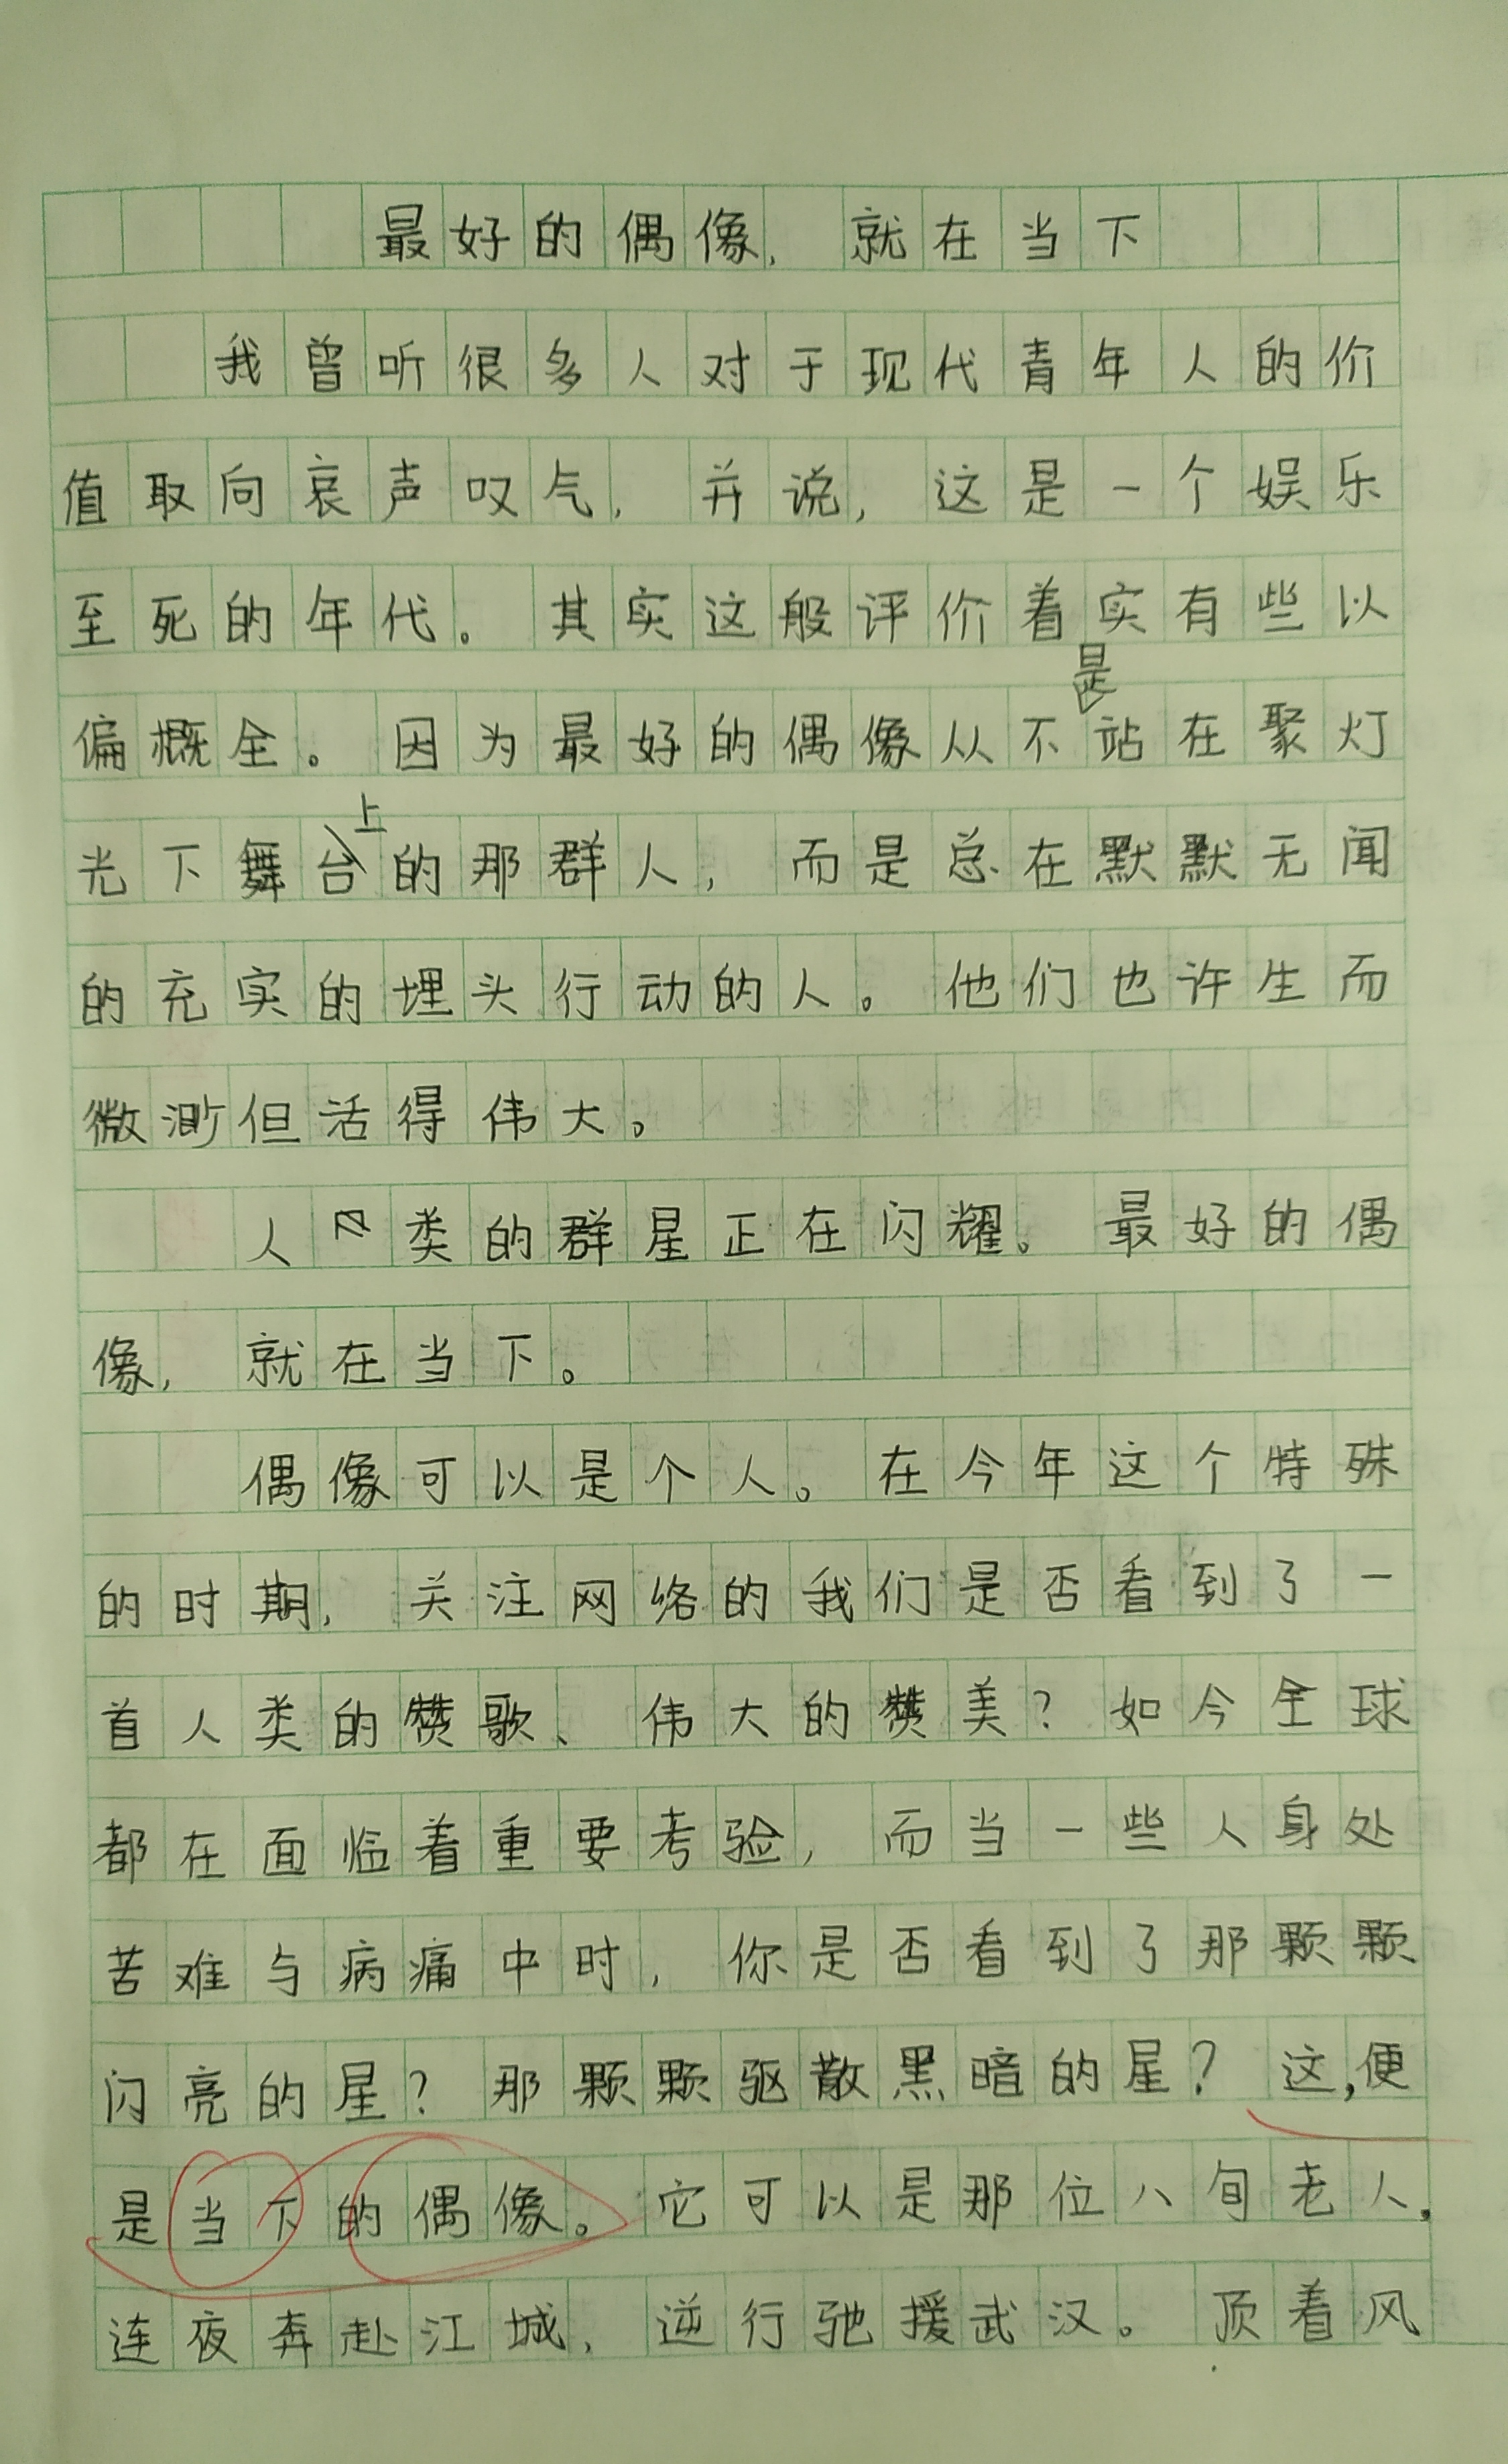 最好的偶像，就在当下
我曾听很多人对于现代青年人的价
值取向哀声叹气，并说，这是一个娱乐
至死的年代。其实这般评价着实有些以
偏概全。因为最好的偶像从不是站在聚灯
光下舞台上的那群人，而是总在默默无闻
的充实的埋头行动的人。他们也许生而
微渺但活得伟大。
人类的群星正在闪耀。最好的偶
像，就在当下。
偶像可以是个人。在今年这个特殊
的时期，关注网络的我们是否看到了一
首人类的赞歌、伟大的赞美？如今全球
都在面临着重要考验，而当一些人身处
苦难与病痛中时，你是否看到了那颗颗
闪亮的星？那颗颗驱散黑暗的星？这，便
是当下的偶像。它可以是那位八旬老人，
连夜奔赴江城，逆行驰援武汉。顶着风